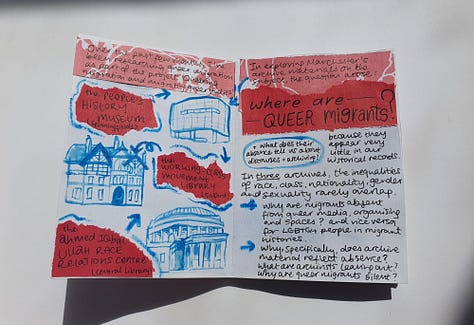 Over the past few months I've
been researching queer migration
as part of the project Queering
migration and migrating queer studies
the PEOPLE'S
HISTORY
MUSEUM
(Spinningfields)
the
WORKING CLASS
MOVEMENT
LIBRARY
(Salford)
the
ahmed IQBAL
ULLAH RACE
RELATIONS CENTRE
(Central Library)
In exploring Manchester's
archive materials on the
subject, the question arose
where are
QUEER migrants?
+ what does their
absence tell us about
discourses + archiving?
because they
appear very
little in our
historical records.
In three archives, the inequalities
of race, class, nationality, gender
and sexuality rarely overlap.
Why are migrants absent
from queer media, organising
and spaces? and vice versa
for LGBTQ+ people in migrant
histories.
Why, specifically, does archive
material reflect absence?
What are archivists leaving out?
Why are queer migrants silent?